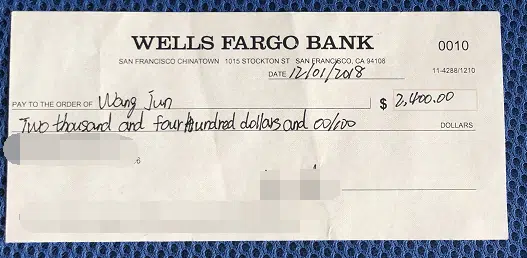 WELLS FARGO BANK
0010
SAN FRANCISCO CHINATOWN 1015 STOCKTON ST SAN FRANCISCO, CA 94108
DATE 12/01/2018
11-4288/1210
PAY TO THE ORDER OF Wang Jun $ 2,400.00
Two thousand and four Hundred dollars and 00/100 DOLLARS